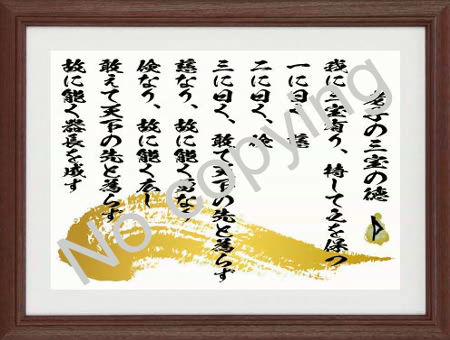 老子の三宝の徳
我に三宝有り、持して之を保つ
一に曰く、慈
二に曰く、倹
三に曰く、敢て天下の先と為らず
慈なり、故に能く勇なり
倹なり、故に能く広し
敢えて天下の先と為らず
故に能く器長を成す
No copying